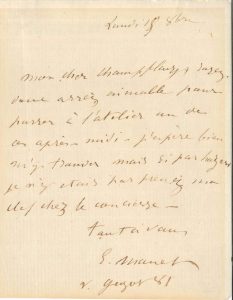 Lundi 15 8bre
mon cher Champfleury, soyez
donc assez aimable pour
passer à l'atelier un de
ces après-midi - j'espère bien
m'y trouver mais si par hasard
je n'y étais pas prenez ma
clef chez le concierge -
tout à vous
E. Manet
r. Guyot 81